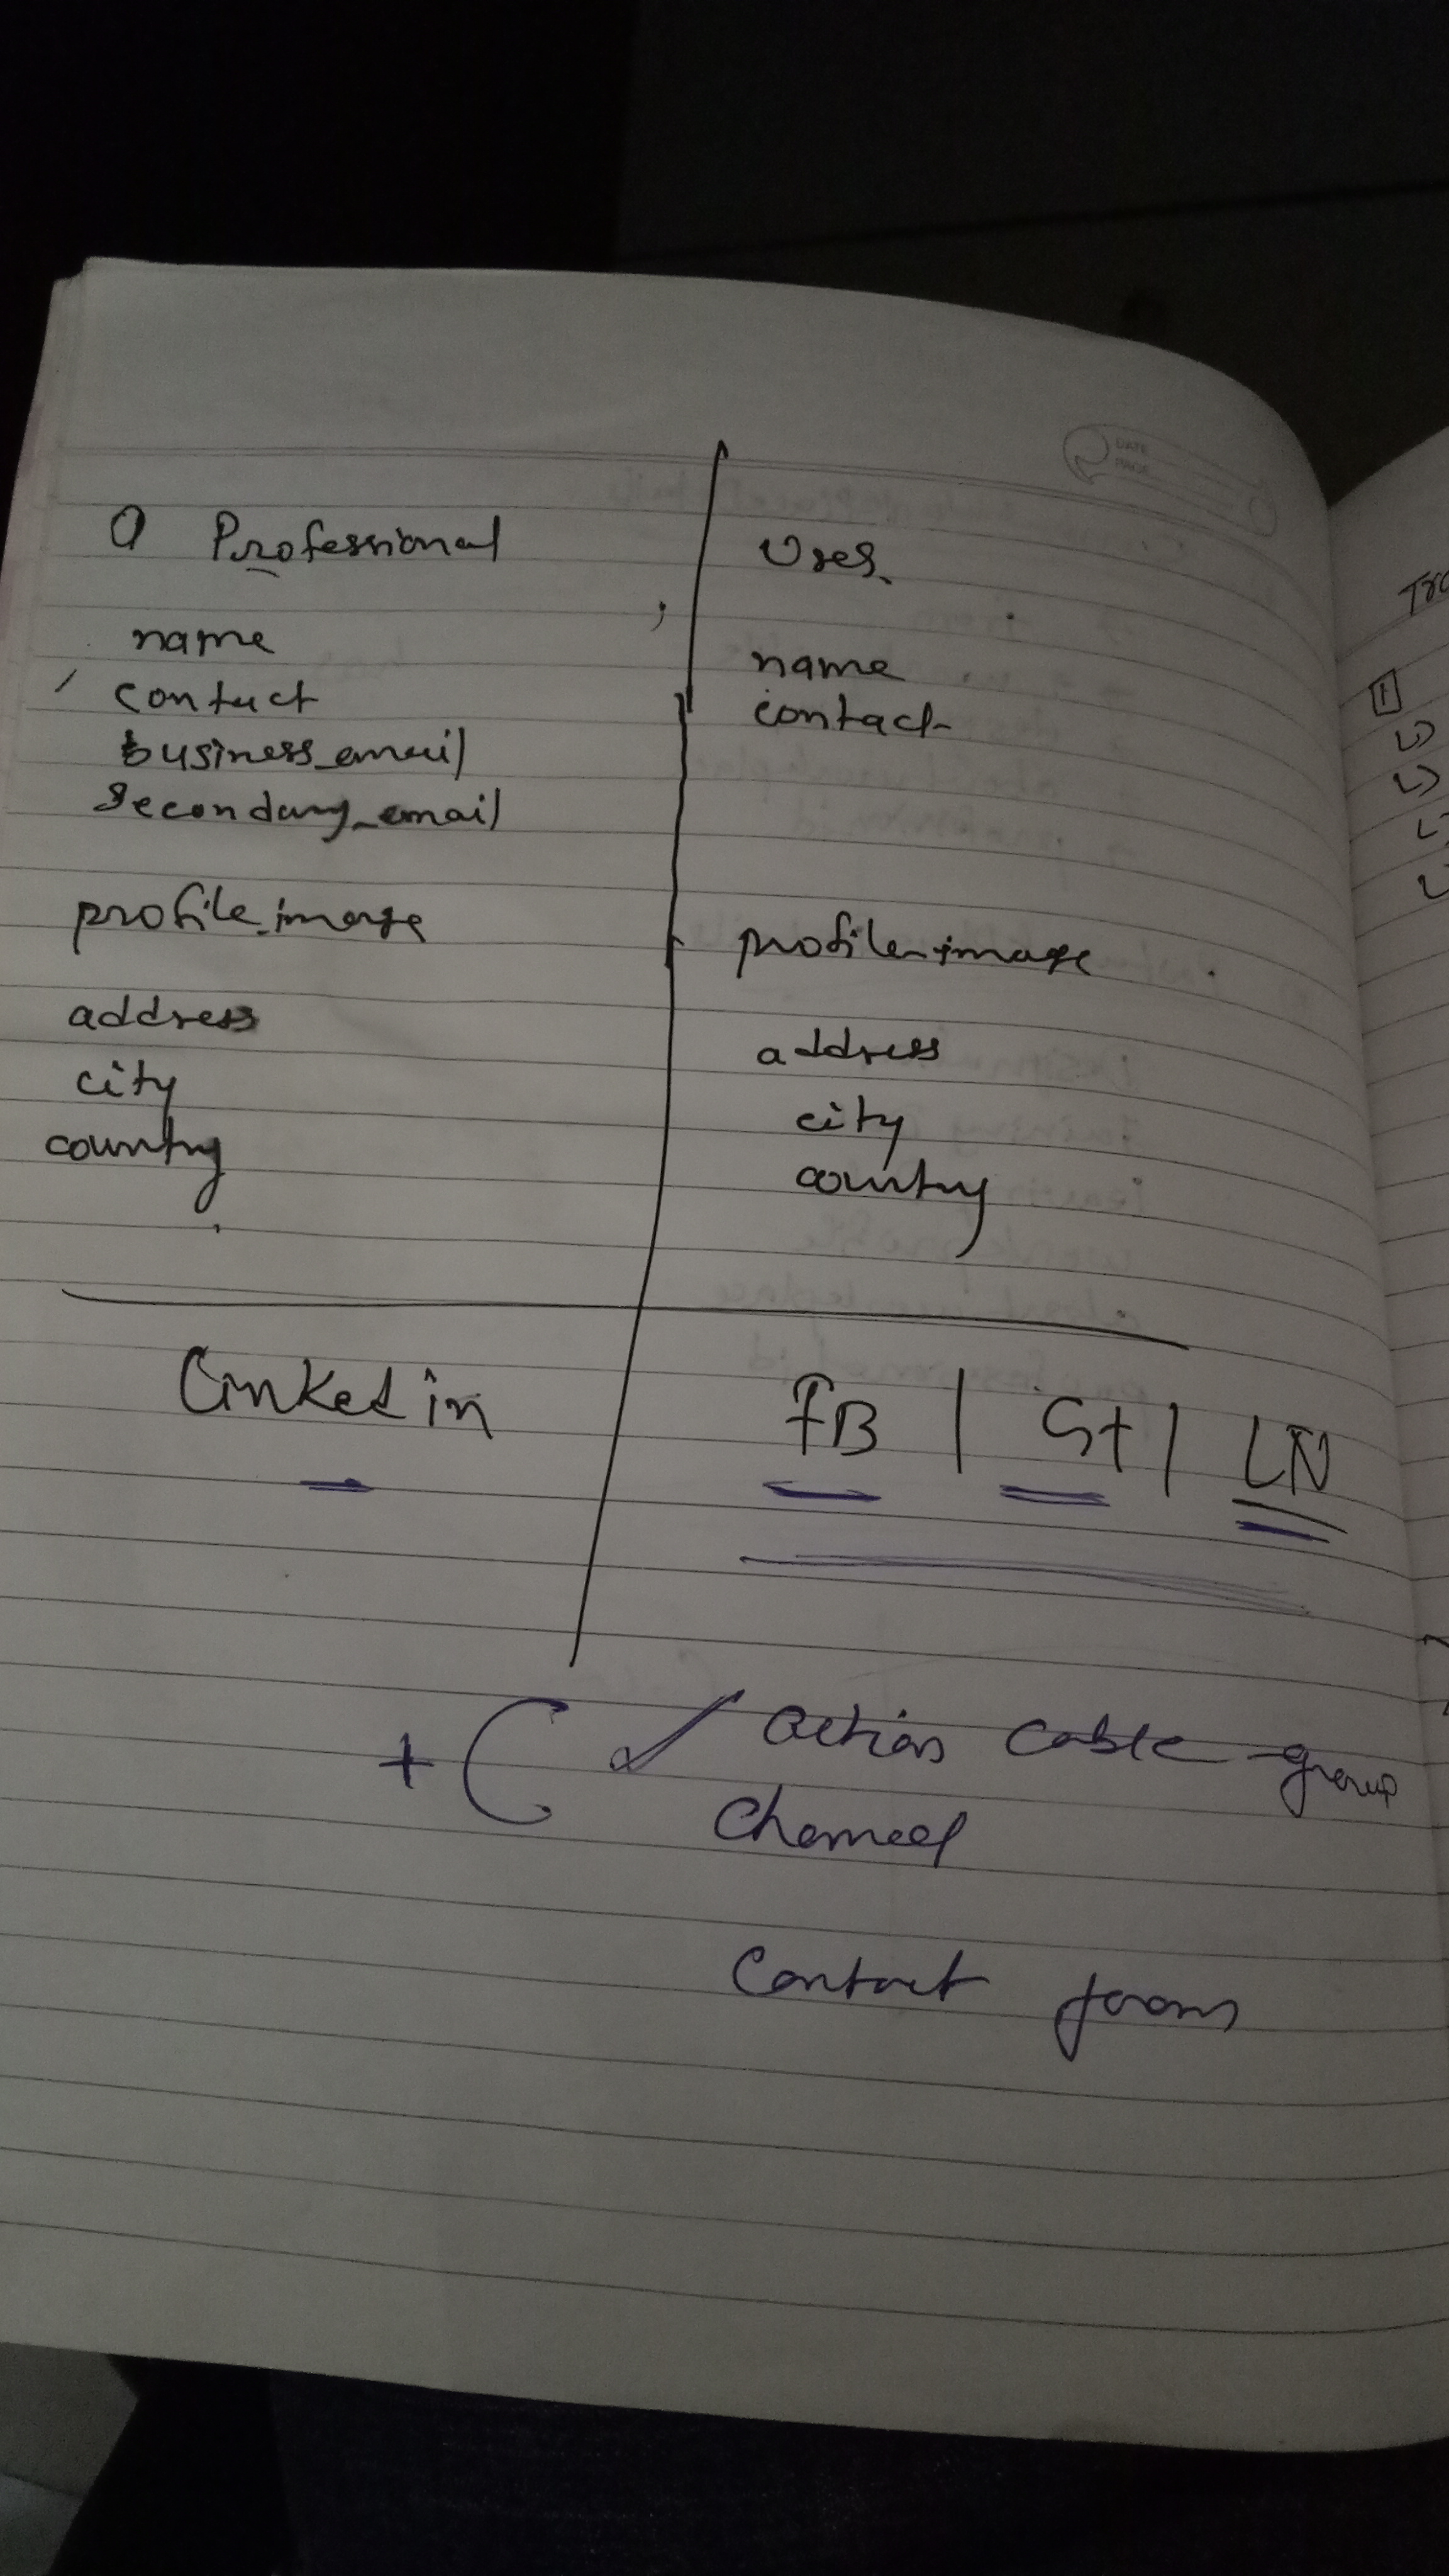 DATE
PAGE
Professional
name
contact
business_email
secondary_email
profile_image
address
city
country
User
name
contact
profile_image
address
city
country
Linkedin
FB | Gt | LN
+ ( action cable group
channel
contact form
1